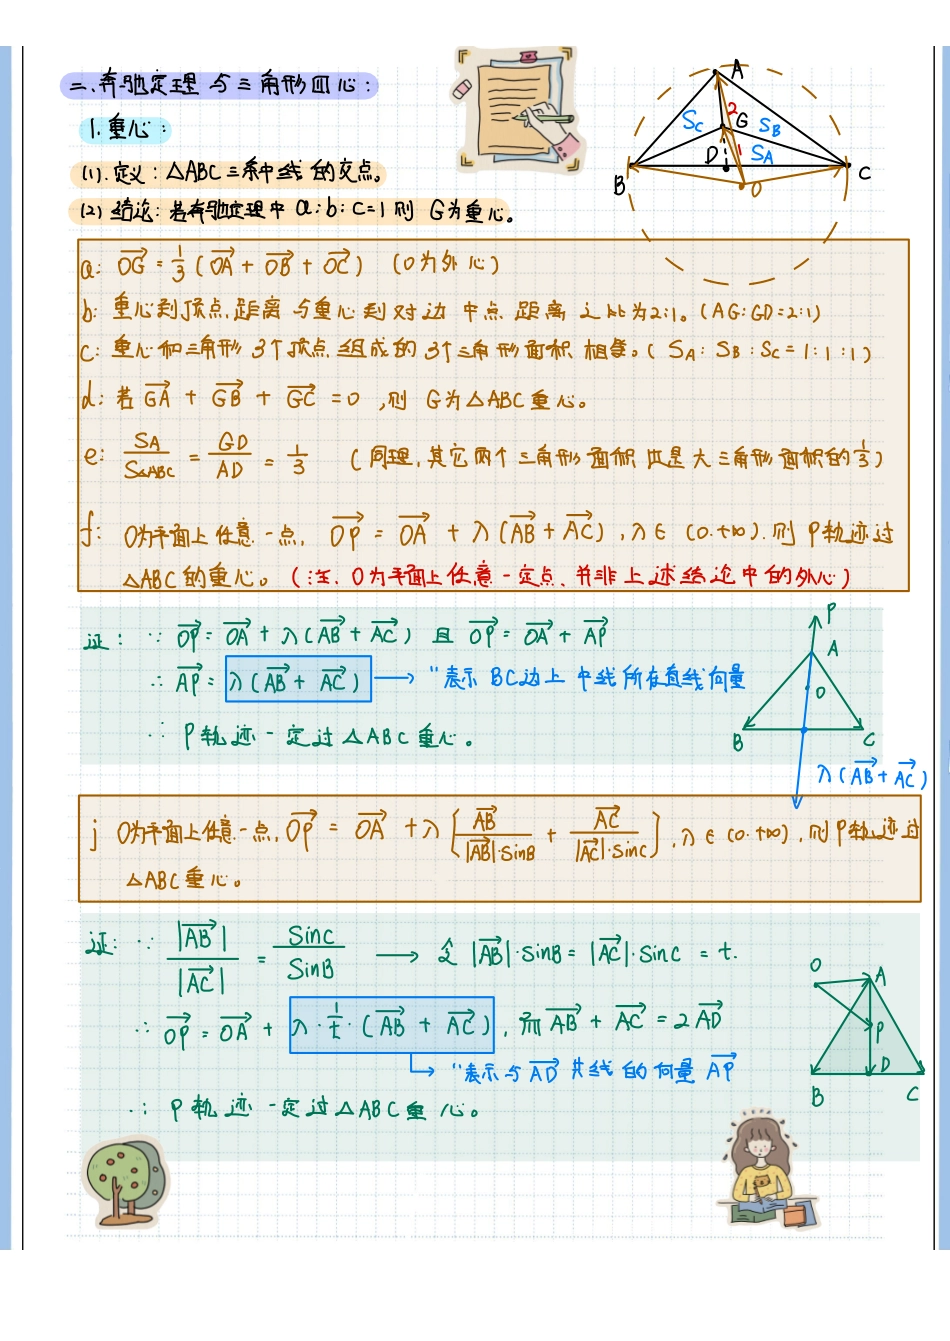 二、奔驰定理与三角形四心:
1.重心:
(1).定义:△ABC三条中线的交点。
(2)结论:若奔驰定理中 a:b:c=1 则 G为重心。
A
Sc
2
G
S_B
D
1
S_A
B
O
C
a: \overrightarrow{OG} = \frac{1}{3}(\overrightarrow{OA} + \overrightarrow{OB} + \overrightarrow{OC}) (O为外心)
b: 重心到顶点距离与重心到对边中点距离之比为2:1。(AG:GD=2:1)
c: 重心和三角形3个顶点组成的3个三角形面积相等。(S_A:S_B:S_C=1:1:1)
d: 若 \overrightarrow{GA} + \overrightarrow{GB} + \overrightarrow{GC} = 0 ,则 G为△ABC重心。
e: \frac{S_A}{S_{△ABC}} = \frac{GD}{AD} = \frac{1}{3} (同理,其它两个三角形面积也是大三角形面积的\frac{1}{3})
f: O为平面上任意一点, \overrightarrow{OP} = \overrightarrow{OA} + λ(\overrightarrow{AB} + \overrightarrow{AC}) ,λ∈(0.+∞).则P轨迹过
△ABC的重心。(注、O为平面上任意一定点、并非上述结论中的外心)
证: ∵ \overrightarrow{OP} = \overrightarrow{OA} + λ(\overrightarrow{AB} + \overrightarrow{AC}) 且 \overrightarrow{OP} = \overrightarrow{OA} + \overrightarrow{AP}
∴ \overrightarrow{AP} = λ(\overrightarrow{AB} + \overrightarrow{AC}) → "表示 BC边上中线所在直线向量
∴ P轨迹一定过△ABC重心。
P
A
O
B
C
λ(\overrightarrow{AB} + \overrightarrow{AC})
j O为平面上任意一点, \overrightarrow{OP} = \overrightarrow{OA} + λ[\frac{\overrightarrow{AB}}{|\overrightarrow{AB}|·sinB} + \frac{\overrightarrow{AC}}{|\overrightarrow{AC}|·sinC}] ,λ∈(0.+∞),则P轨迹过
△ABC重心。
证: ∵ \frac{|\overrightarrow{AB}|}{|\overrightarrow{AC}|} = \frac{sinC}{sinB} → 令 |\overrightarrow{AB}|·sinB = |\overrightarrow{AC}|·sinC = t.
∴ \overrightarrow{OP} = \overrightarrow{OA} + λ·\frac{1}{t}·(\overrightarrow{AB} + \overrightarrow{AC}) , 而 \overrightarrow{AB} + \overrightarrow{AC} = 2\overrightarrow{AD}
→ "表示与\overrightarrow{AD}共线的向量\overrightarrow{AP}
∴ P轨迹一定过△ABC重心。
O
A
P
D
B
C